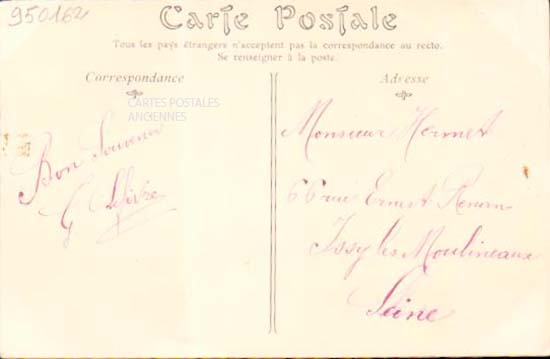 950162
Carte Postale
Tous les pays étrangers n'acceptent pas la correspondance au recto.
Se renseigner à la poste.
Correspondance
CARTES POSTALES
ANCIENNES
Bon Souvenir
G Lefèvre
Adresse
Monsieur Hermet
66 rue Ernest Renan
Issy les Moulineaux
Seine